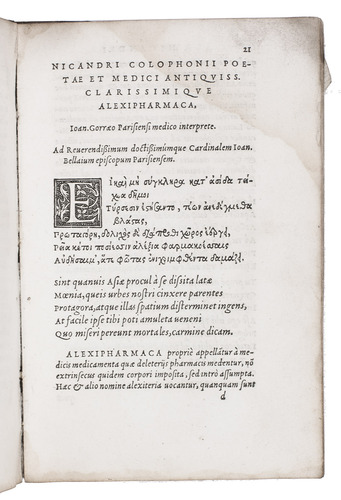 21
NICANDRI COLOPHONII POE-
TAE ET MEDICI ANTIQVISS.
CLARISSIMIQVE
ALEXIPHARMACA,
Ioan. Gorræo Parisiensi medico interprete.
Ad Reuerendißimum doctißimúmque Cardinalem Ioan.
Bellaium episcopum Parisiensem.
Εἰ καὶ μὴ σύγκληρα κατ' ἀσίδα τεί
χεα δῆμοι
Τύρσεσιν ἐστήσαντο, τέων ἀνεδέγμεθα
βλάστας,
Πρωταγόρη, δολιχὸς δὲ διάπροθι χῶρος ἐέργει,
Ρεῖά κέ τοι ποσίεσσιν ἀλέξια φαρμακοέσσαις
Αὐδήσαιμ', ἅτε φῶτας ἐνιχριμφθέντα δαμάζει.
Sint quanuis Asiæ procul à se dissita latæ
Mœnia, queis vrbes nostri cinxere parentes
Protagora, atque illas spatium disterminet ingens,
At facile ipse tibi poti amuleta veneni
Quo miseri pereunt mortales, carmine dicam.
ALEXIPHARMACA propriè appellātur à me-
dicis medicamenta quæ deleterijs pharmacis medentur, nō
extrinsecus quidem corpori imposita, sed intrò assumpta.
Hæc & alio nomine alexiteria uocantur, quanquam sunt
d